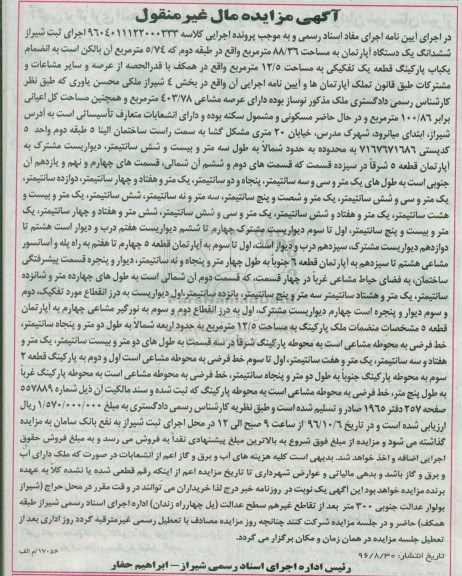 آگهی مزایده مال غیر منقول
در اجرای آیین نامه اجرای مفاد اسناد رسمی و به موجب پرونده اجرایی کلاسه ۹۶۰۴۰۱۱۱۲۲۰۰۰۳۳۳ اجرای ثبت شیراز
ششدانگ یک دستگاه آپارتمان به مساحت ۸۸/۳۶ مترمربع واقع در طبقه دوم که ۵/۷۴ مترمربع آن بالکن است به انضمام
یکباب پارکینگ قطعه یک تفکیکی به مساحت ۱۲/۵ مترمربع واقع در همکف با قدرالحصه از عرصه و سایر مشاعات و
مشترکات طبق قانون تملک آپارتمان ها و آیین نامه اجرایی آن واقع در بخش ۴ شیراز ملکی محسن یاوری که طبق نظر
کارشناس رسمی دادگستری ملک مذکور نوساز بوده دارای عرصه مشاعی ۴۰۳/۷۸ مترمربع و همچنین مساحت کل اعیانی
برابر ۱۰۰/۸۶ مترمربع و در حال حاضر مسکونی و مشمول سکنه بوده و دارای انشعابات متعارف تأسیساتی است به آدرس
شیراز، ابتدای میانرود، شهرک مدرس، خیابان ۲۰ متری مشکل گشا به سمت راست ساختمان الینا ۵ طبقه دوم واحد ۵
کدپستی ۷۱۶۷۶۷۱۶۸۶ به محدوده به حدود شمالاً به طول سه متر و بیست و شش سانتیمتر، دیواریست مشترک به
آپارتمان قطعه ۵ شرقاً در سیزده قسمت که قسمت های دوم و ششم آن شمالی، قسمت های چهارم و نهم و یازدهم آن
جنوبی است به طول های یک متر و سی و سه سانتیمتر، پنجاه و دو سانتیمتر، یک متر و هفتاد و چهار سانتیمتر، دوازده سانتیمتر،
یک متر و سی و شش سانتیمتر، یک متر و شصت و پنج سانتیمتر، سه متر و نه سانتیمتر، شش سانتیمتر، یک متر و بیست و
هشت سانتیمتر، یک متر و هفتاد و شش سانتیمتر، یک متر و سی و شش سانتیمتر، شش متر و هفتاد و چهار سانتیمتر، یک
متر و بیست و پنج سانتیمتر، اول تا سوم دیواریست مشترک چهارم تا ششم دیواریست هفتم درب و دیوار است هشتم تا
دوازدهم دیواریست مشترک، سیزدهم درب و دیوار است، اول تا سوم به آپارتمان قطعه ۵ چهارم تا هفتم به راه پله و آسانسور
مشاعی هشتم تا سیزدهم به آپارتمان قطعه ۶ جنوباً به طول چهار متر و پنجاه و نه سانتیمتر، دیوار و پنجره قسمت پیشرفتگی
ساختمان، به فضای حیاط مشاعی غرباً در چهار قسمت، که قسمت دوم آن شمالی است به طول های چهارده متر و شانزده
سانتیمتر، یک متر و هشتاد سانتیمتر سه متر و پنج سانتیمتر، پانزده سانتیمتر، اول دیواریست به درز انقطاع مورد تفکیک، دوم
و سوم دیوار و پنجره است چهارم دیواریست مشترک، اول به درز انقطاع دوم و سوم به نورگیر مشاعی چهارم به آپارتمان
قطعه ۵ مشخصات منضمات ملک پارکینگ به مساحت ۱۲/۵ مترمربع به حدود اربعه شمالاً به طول دو متر و پنجاه سانتیمتر،
خط فرضی به محوطه مشاعی است به محوطه پارکینگ شرقاً در سه قسمت به طول های دو متر و بیست سانتیمتر، یک متر و
هفتاد و سه سانتیمتر، یک متر و هفت سانتیمتر، اول تا سوم خط فرضی به محوطه مشاعی است اول و دوم به پارکینگ قطعه ۲
سوم به محوطه پارکینگ جنوباً به طول دو متر و پنجاه سانتیمتر، خط فرضی به محوطه مشاعی است به محوطه پارکینگ غرباً
به طول پنج متر، خط فرضی به محوطه مشاعی است به محوطه پارکینگ که ثبت شده و سند مالکیت آن ذیل شماره ۵۵۷۸۸۹
صفحه ۲۵۷ دفتر ۱۹۶۵ صادر و تسلیم شده است و طبق نظریه کارشناس رسمی دادگستری به مبلغ ۱/۵۷۰/۰۰۰/۰۰۰ ریال
ارزیابی شده است و در تاریخ ۹۶/۱۰/۶ از ساعت ۹ صبح الی ۱۲ در محل اجرای ثبت شیراز به نفع بانک سامان به مزایده
گذاشته می شود و مزایده از مبلغ فوق شروع به بالاترین مبلغ پیشنهادی نقداً به فروش می رسد و به مبلغ فروش حقوق
اجرایی اضافه و اخذ خواهد شد. بدیهی است کلیه هزینه های آب و برق و گاز اعم از انشعابات در صورت که ملک دارای آب
و برق و گاز باشد و بدهی مالیاتی و عوارض شهرداری تا تاریخ مزایده اعم از اینکه رقم قطعی شده یا نشده کلاً به عهده
برنده مزایده خواهد بود این آگهی یک نوبت در روزنامه خبر درج لذا خریداران می توانند در وقت مقرر در محل حراج (شیراز
بولوار عدالت جنوبی ۳۰۰ متر بعد از تقاطع غیرهم سطح عدالت (پل چهارراه زندان) اداره اجرای اسناد رسمی شیراز طبقه
همکف) حاضر و در جلسه مزایده شرکت کنند چنانچه روز مزایده مصادف با تعطیل رسمی غیرمترقبه گردد روز اداری بعد از
تعطیل جلسه مزایده در همان زمان و مکان برگزار می گردد.
تاریخ انتشار: ۹۶/۸/۳۰
۱۷۰۵۶/م الف
رئیس اداره اجرای اسناد رسمی شیراز - ابراهیم حفار